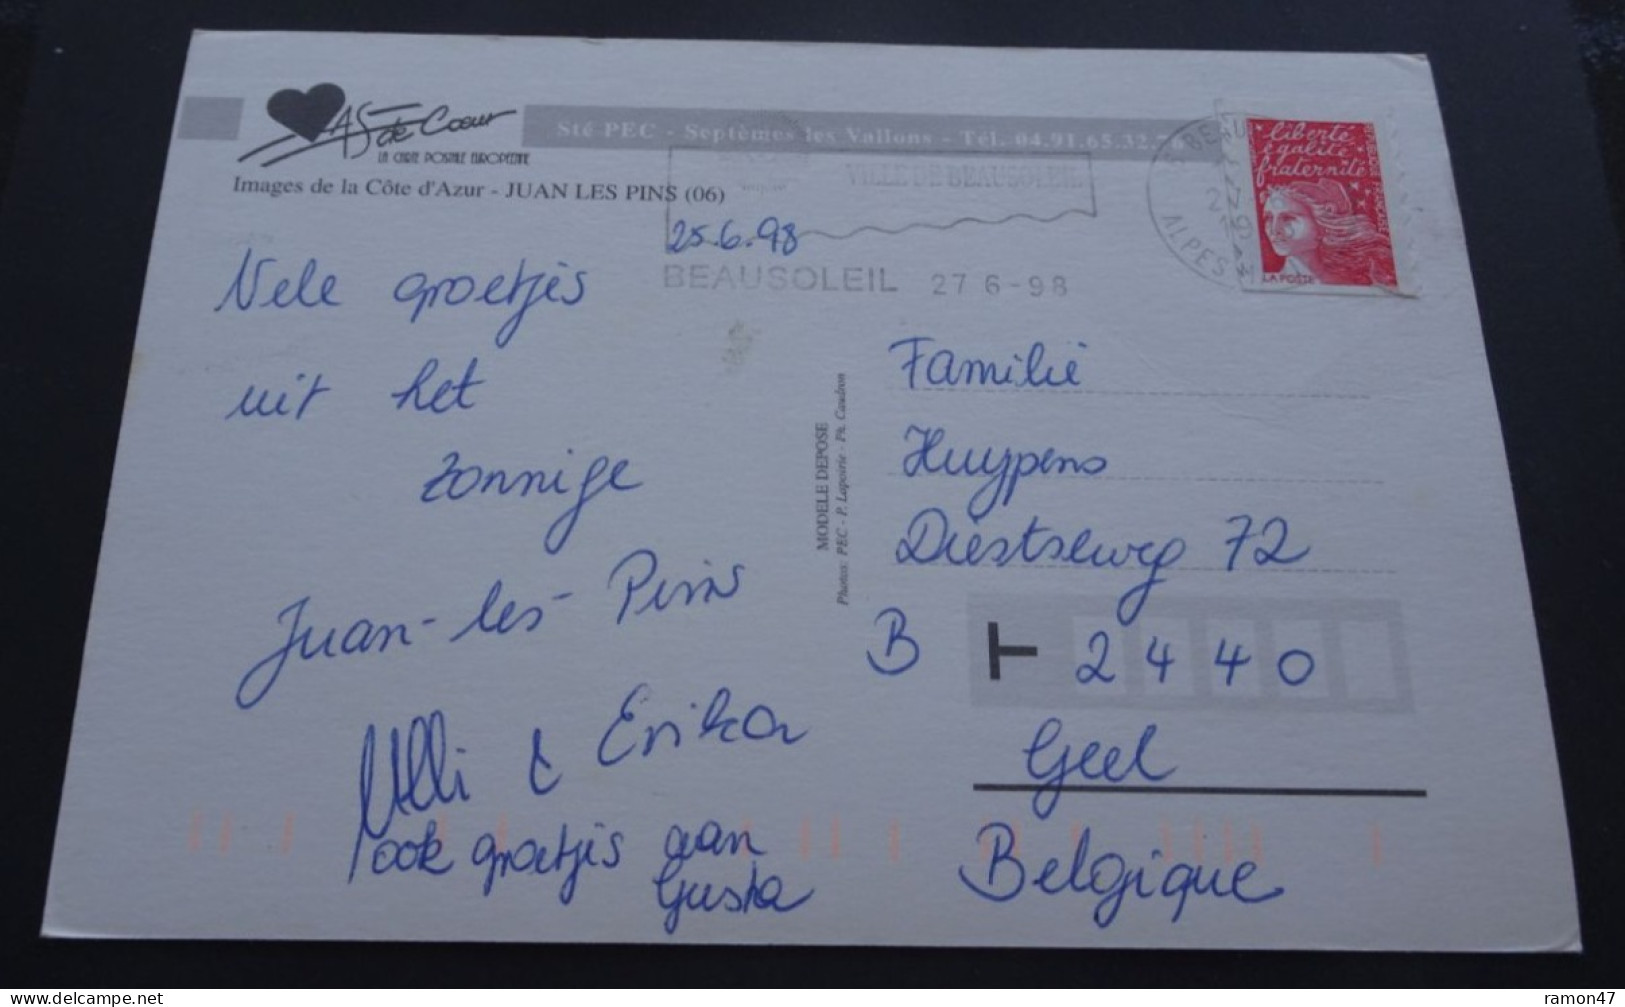 AS de Cœur
LA CARTE POSTALE EUROPEENNE
Sté PEC - Septèmes les Vallons - Tél. 04.91.65.32.7
Images de la Côte d'Azur - JUAN LES PINS (06)
VILLE DE BEAUSOLEIL
BEAUSOLEIL 27 6-98
ALPES M
liberté
égalité
fraternité
LA POSTE
25.6.98
Vele groetjes
uit het
zonnige
Juan-les-Pins
Ulli & Erika
ook groetjes aan
Gusta
MODELE DEPOSE
Photos: PEC - P. Lapoirie - Ph. Caudron
Familie
Huypens
Diestseweg 72
B 2440
Geel
Belgique
ramon47